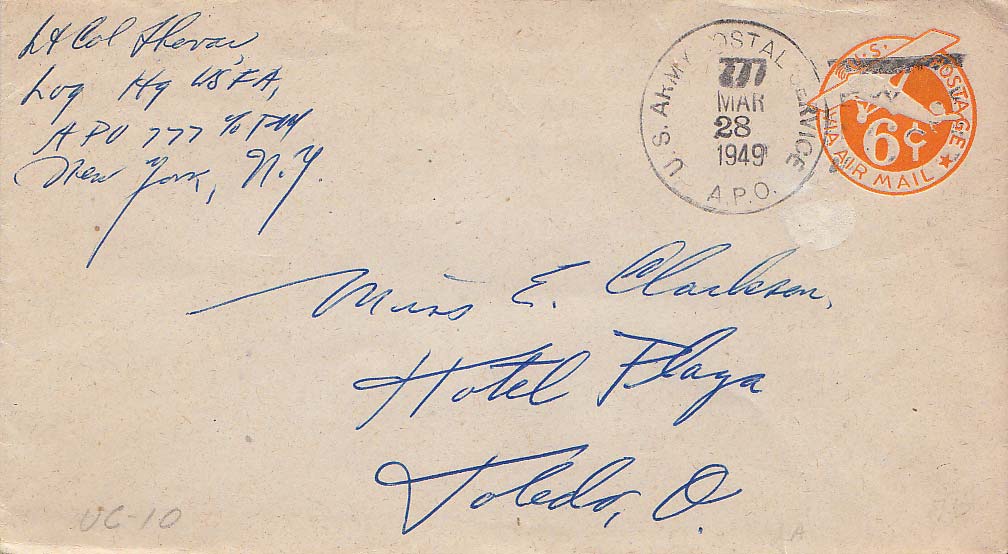 Lt Col
Log Hq USFA,
APO 777 c/o PM
New York, N.Y.
U.S. ARMY POSTAL SERVICE
777
MAR
28
1949
A.P.O.
U.S. POSTAGE
6¢
VIA AIR MAIL
Miss E. Clarkson,
Hotel Plaza
Toledo, O.
UC-10